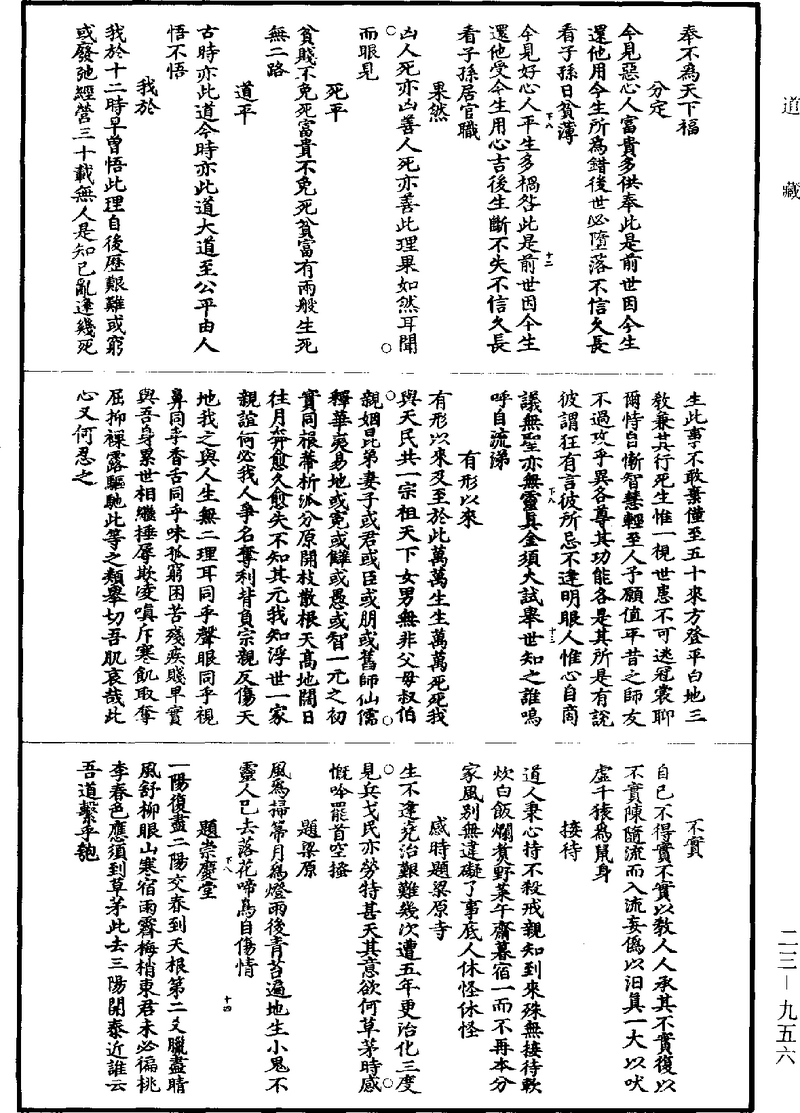 道藏
二三—九五六
奉不為天下福
分定
今見惡心人富貴多供奉此是前世因今生
還他用今生所為錯後世必墮落不信久長
看子孫日貧薄
下八
十二
今見好心人平生多禍咎此是前世因今生
還他受今生用心吉後生斷不失不信久長
看子孫居官職
果然
凶人死亦凶善人死亦善此理果如然耳聞
而眼見
死平
貧賤不免死富貴不免死貧富有兩般生死
無二路
道平
古時亦此道今時亦此道大道至公平由人
悟不悟
我於
我於十二時早曾悟此理自後歷艱難或窮
或廢弛經營三十載無人是知已亂逢幾死
生此事不敢棄僅至五十來方登平白地三
教兼其行死生惟一視世患不可逃冠裳聊
爾恃自慚智慧輕至人予願值平昔之師友
不過攻乎異各尊其功能各是其所是有說
彼謂狂有言彼所忌不逢明眼人惟心自商
下八
十三
議無聖亦無靈真金須大試舉世知之誰嗚
呼自流涕
有形以來
有形以來及至於此萬萬生生萬萬死死我
與天民共一宗祖天下女男無非父母叔伯
親姻昆弟妻子或君或臣或朋或舊師仙儒
釋華夷易地或寃或讎或愚或智一元之初
實同根蒂析派分原開枝散根天高地闊日
往月筭愈久愈失不知其元我知浮世一家
親誼何必我人爭名奪利背負宗親反傷天
地我之與人生無二理耳同乎聲眼同乎視
鼻同乎香舌同乎味孤窮困苦殘疾賤卑實
與吾身累世相繼捶辱欺凌嗔斥寒飢取奪
屈抑裸露驅馳此等之類舉切吾肌哀哉此
心又何忍之
不實
自己不得實不實以教人人承其不實復以
不實陳隨流而入流妄偽以汩真一犬以吠
虛千猿為鼠身
接待
道人秉心持不殺戒親知到來殊無接待軟
炊白飯爛煑野菜午齋暮宿一而不再本分
家風別無違礙了事底人休怪休怪
感時題梁原寺
生不逢堯治艱難幾次遭五年更治化三度
見兵戈民亦勞特甚天其意欲何草茅時感
慨吟罷首空搔
題梁原
風為掃箒月為燈雨後青苔遍地生小鬼不
靈人已去落花啼鳥自傷情
下八
十四
題崇慶堂
一陽復盡二陽交春到天根第二爻臘盡晴
風舒柳眼山寒宿雨霽梅梢東君未必徧桃
李春色應須到草茅此去三陽開泰近誰云
吾道繫乎匏